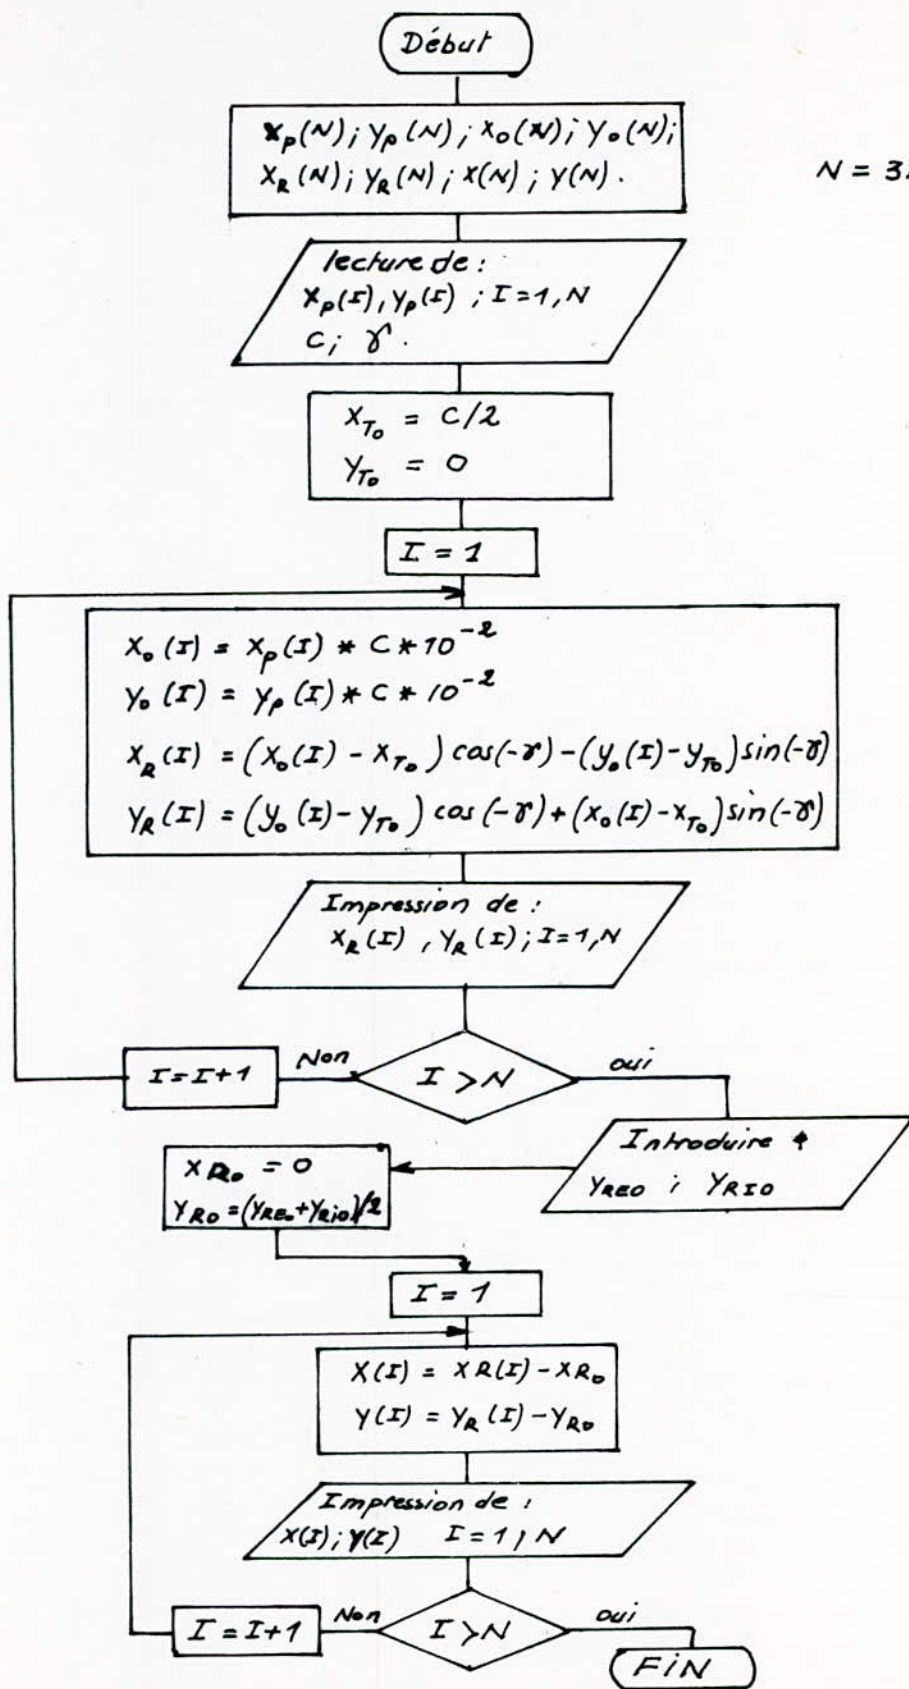 Début
Xp(N); Yp(N); X₀(N); Y₀(N);
X_R(N); Y_R(N); X(N); Y(N).
N = 3
lecture de :
Xp(I), Yp(I) ; I=1, N
C; γ.
X_T₀ = C/2
Y_T₀ = 0
I = 1
X₀(I) = Xp(I) * C * 10⁻²
Y₀(I) = Yp(I) * C * 10⁻²
X_R(I) = (X₀(I) - X_T₀) cos(-γ) - (Y₀(I) - Y_T₀) sin(-γ)
Y_R(I) = (Y₀(I) - Y_T₀) cos(-γ) + (X₀(I) - X_T₀) sin(-γ)
Impression de :
X_R(I) , Y_R(I); I=1, N
I=I+1
Non
I > N
oui
Introduire
Y_REO ; Y_RIO
X_R₀ = 0
Y_R₀ = (Y_RE₀ + Y_Ri₀)/2
I = 1
X(I) = XR(I) - XR₀
Y(I) = Y_R(I) - Y_R₀
Impression de :
X(I); Y(I) I = 1, N
I = I+1
Non
I > N
oui
FiN